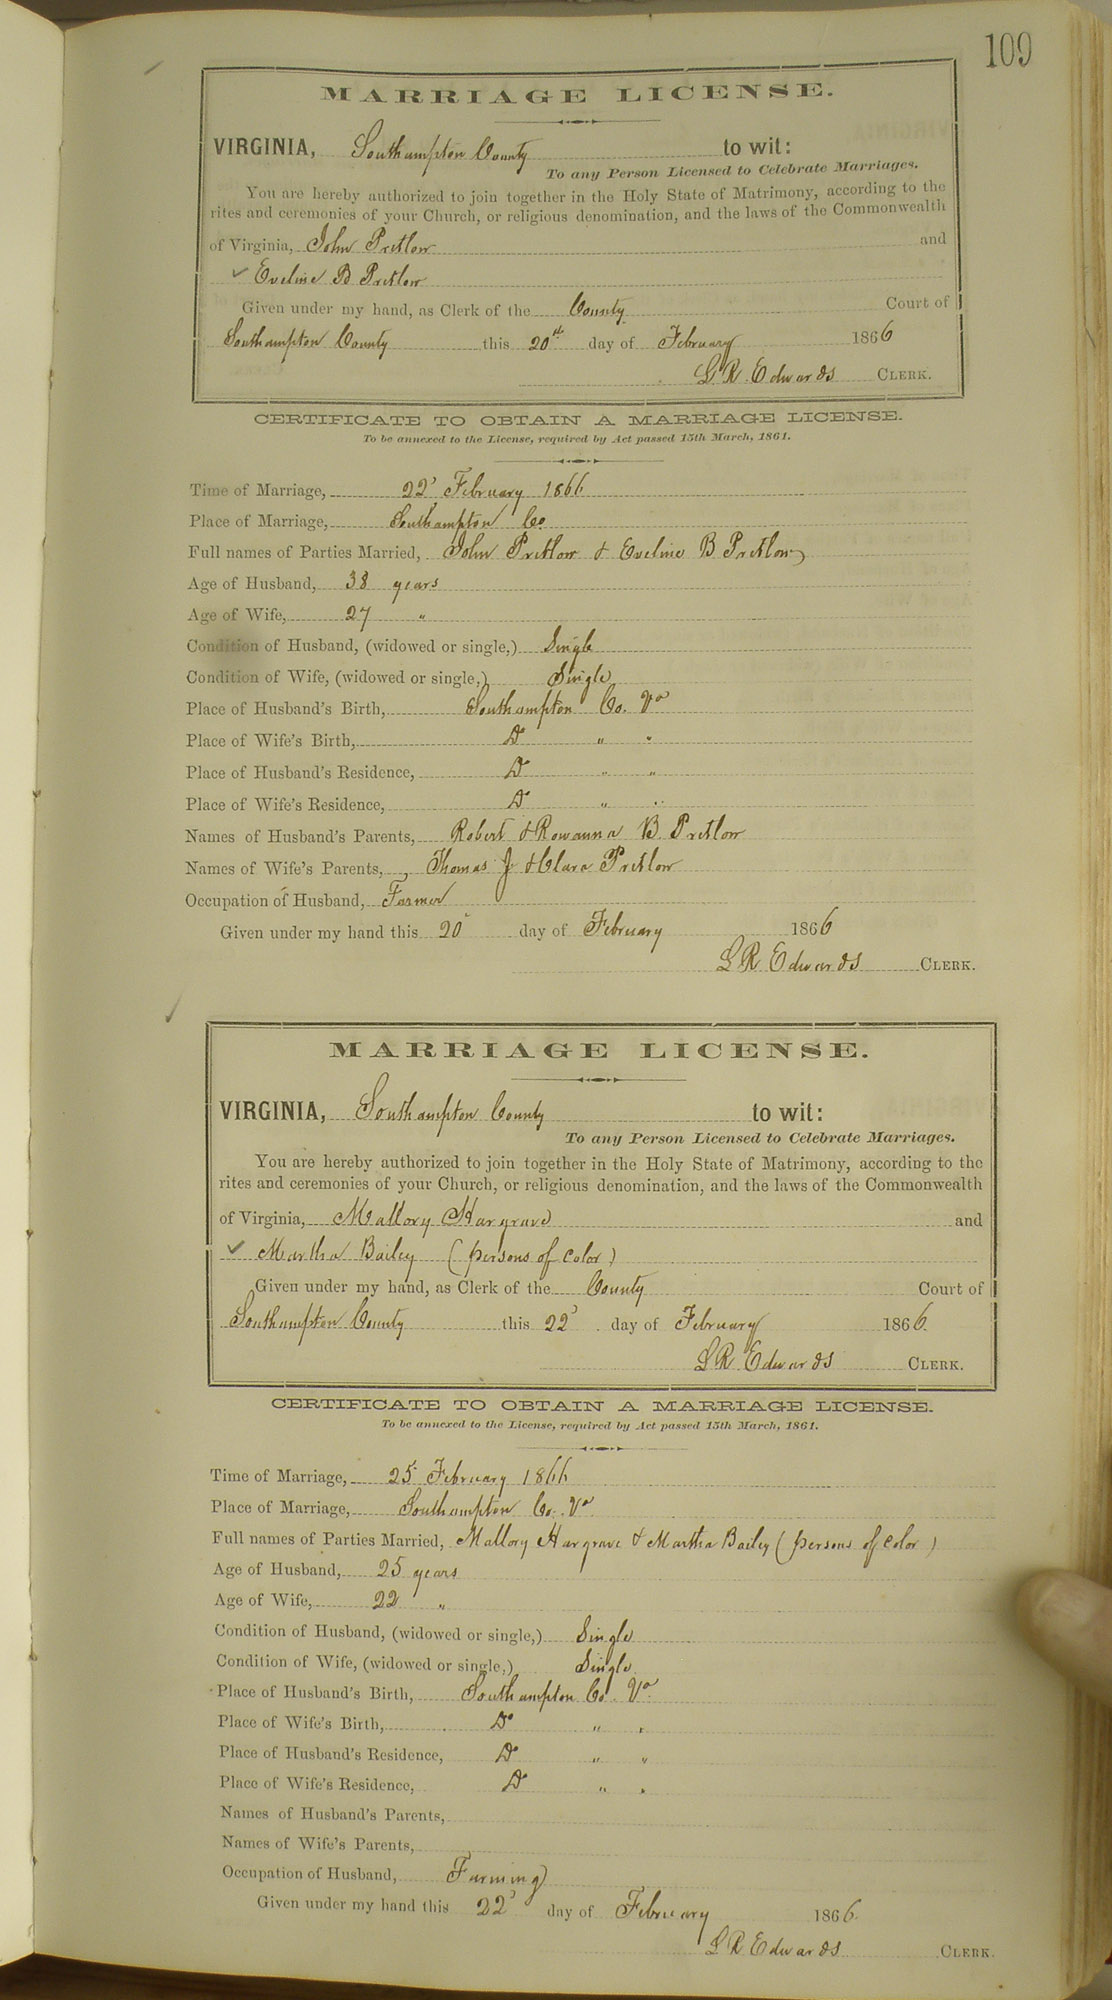 109
MARRIAGE LICENSE.
VIRGINIA, Southampton County to wit:
To any Person Licensed to Celebrate Marriages.
You are hereby authorized to join together in the Holy State of Matrimony, according to the
rites and ceremonies of your Church, or religious denomination, and the laws of the Commonwealth
of Virginia, John Pretlow and
Eveline B Pretlow
Given under my hand, as Clerk of the County Court of
Southampton County this 20th day of February 1866
L R Edwards CLERK.
CERTIFICATE TO OBTAIN A MARRIAGE LICENSE.
To be annexed to the License, required by Act passed 15th March, 1861.
Time of Marriage, 22' February 1866
Place of Marriage, Southampton Co
Full names of Parties Married, John Pretlow & Eveline B Pretlow
Age of Husband, 38 years
Age of Wife, 27 "
Condition of Husband, (widowed or single,) Single
Condition of Wife, (widowed or single,) Single
Place of Husband's Birth, Southampton Co. Va
Place of Wife's Birth, Do " "
Place of Husband's Residence, Do " "
Place of Wife's Residence, Do " "
Names of Husband's Parents, Robert & Rowanna B. Pretlow
Names of Wife's Parents, Thomas J & Clara Pretlow
Occupation of Husband, Farmer
Given under my hand this 20' day of February 1866
L R Edwards CLERK.
MARRIAGE LICENSE.
VIRGINIA, Southampton County to wit:
To any Person Licensed to Celebrate Marriages.
You are hereby authorized to join together in the Holy State of Matrimony, according to the
rites and ceremonies of your Church, or religious denomination, and the laws of the Commonwealth
of Virginia, Mallory Hargrave and
Martha Bailey (persons of color)
Given under my hand, as Clerk of the County Court of
Southampton County this 22' day of February 1866.
L R Edwards CLERK.
CERTIFICATE TO OBTAIN A MARRIAGE LICENSE.
To be annexed to the License, required by Act passed 15th March, 1861.
Time of Marriage, 25' February 1866
Place of Marriage, Southampton Co. Va
Full names of Parties Married, Mallory Hargrave & Martha Bailey (persons of color)
Age of Husband, 25 years
Age of Wife, 22 "
Condition of Husband, (widowed or single,) Single
Condition of Wife, (widowed or single,) Single
Place of Husband's Birth, Southampton Co. Va.
Place of Wife's Birth, Do " "
Place of Husband's Residence, Do " "
Place of Wife's Residence, Do " "
Names of Husband's Parents,
Names of Wife's Parents,
Occupation of Husband, Farming
Given under my hand this 22' day of February 1866.
L R Edwards CLERK.